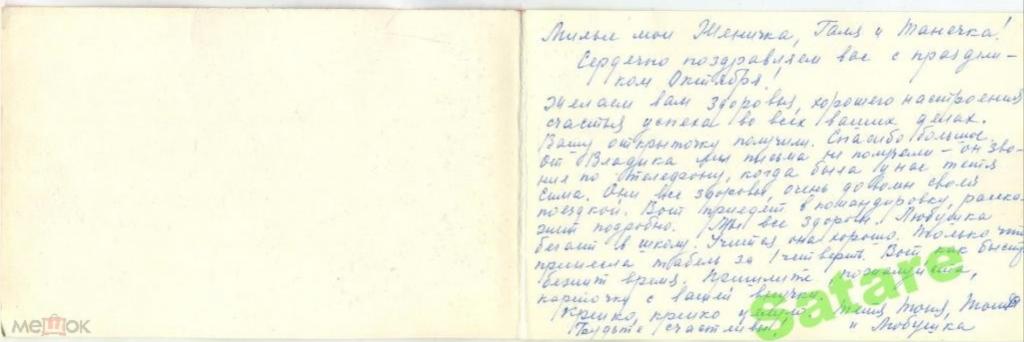 Милые мои Женичка, Галя и Танечка!
Сердечно поздравляем вас с праздни-
ком Октября!
Желаем вам здоровья, хорошего настроения
счастья успеха во всех ваших делах.
Вашу открыточку получили. Спасибо большое.
От Владика мы письма не получали – он зво-
нил по телефону, когда была у нас тётя
Сима. Они все здоровы, очень довольны своей
поездкой. Вот приедет в командировку, расска-
жет подробно. Мы все здоровы. Любушка
бегает в школу. Учится она хорошо. Только что
принесла табель за 1 четверть. Вот как быстро
бежит время. Пришлите, пожалуйста,
карточку с вашей внучки.
Крепко, крепко целую. Тётя Тоня,
Будьте счастливы, и Любушка
satare
мешок